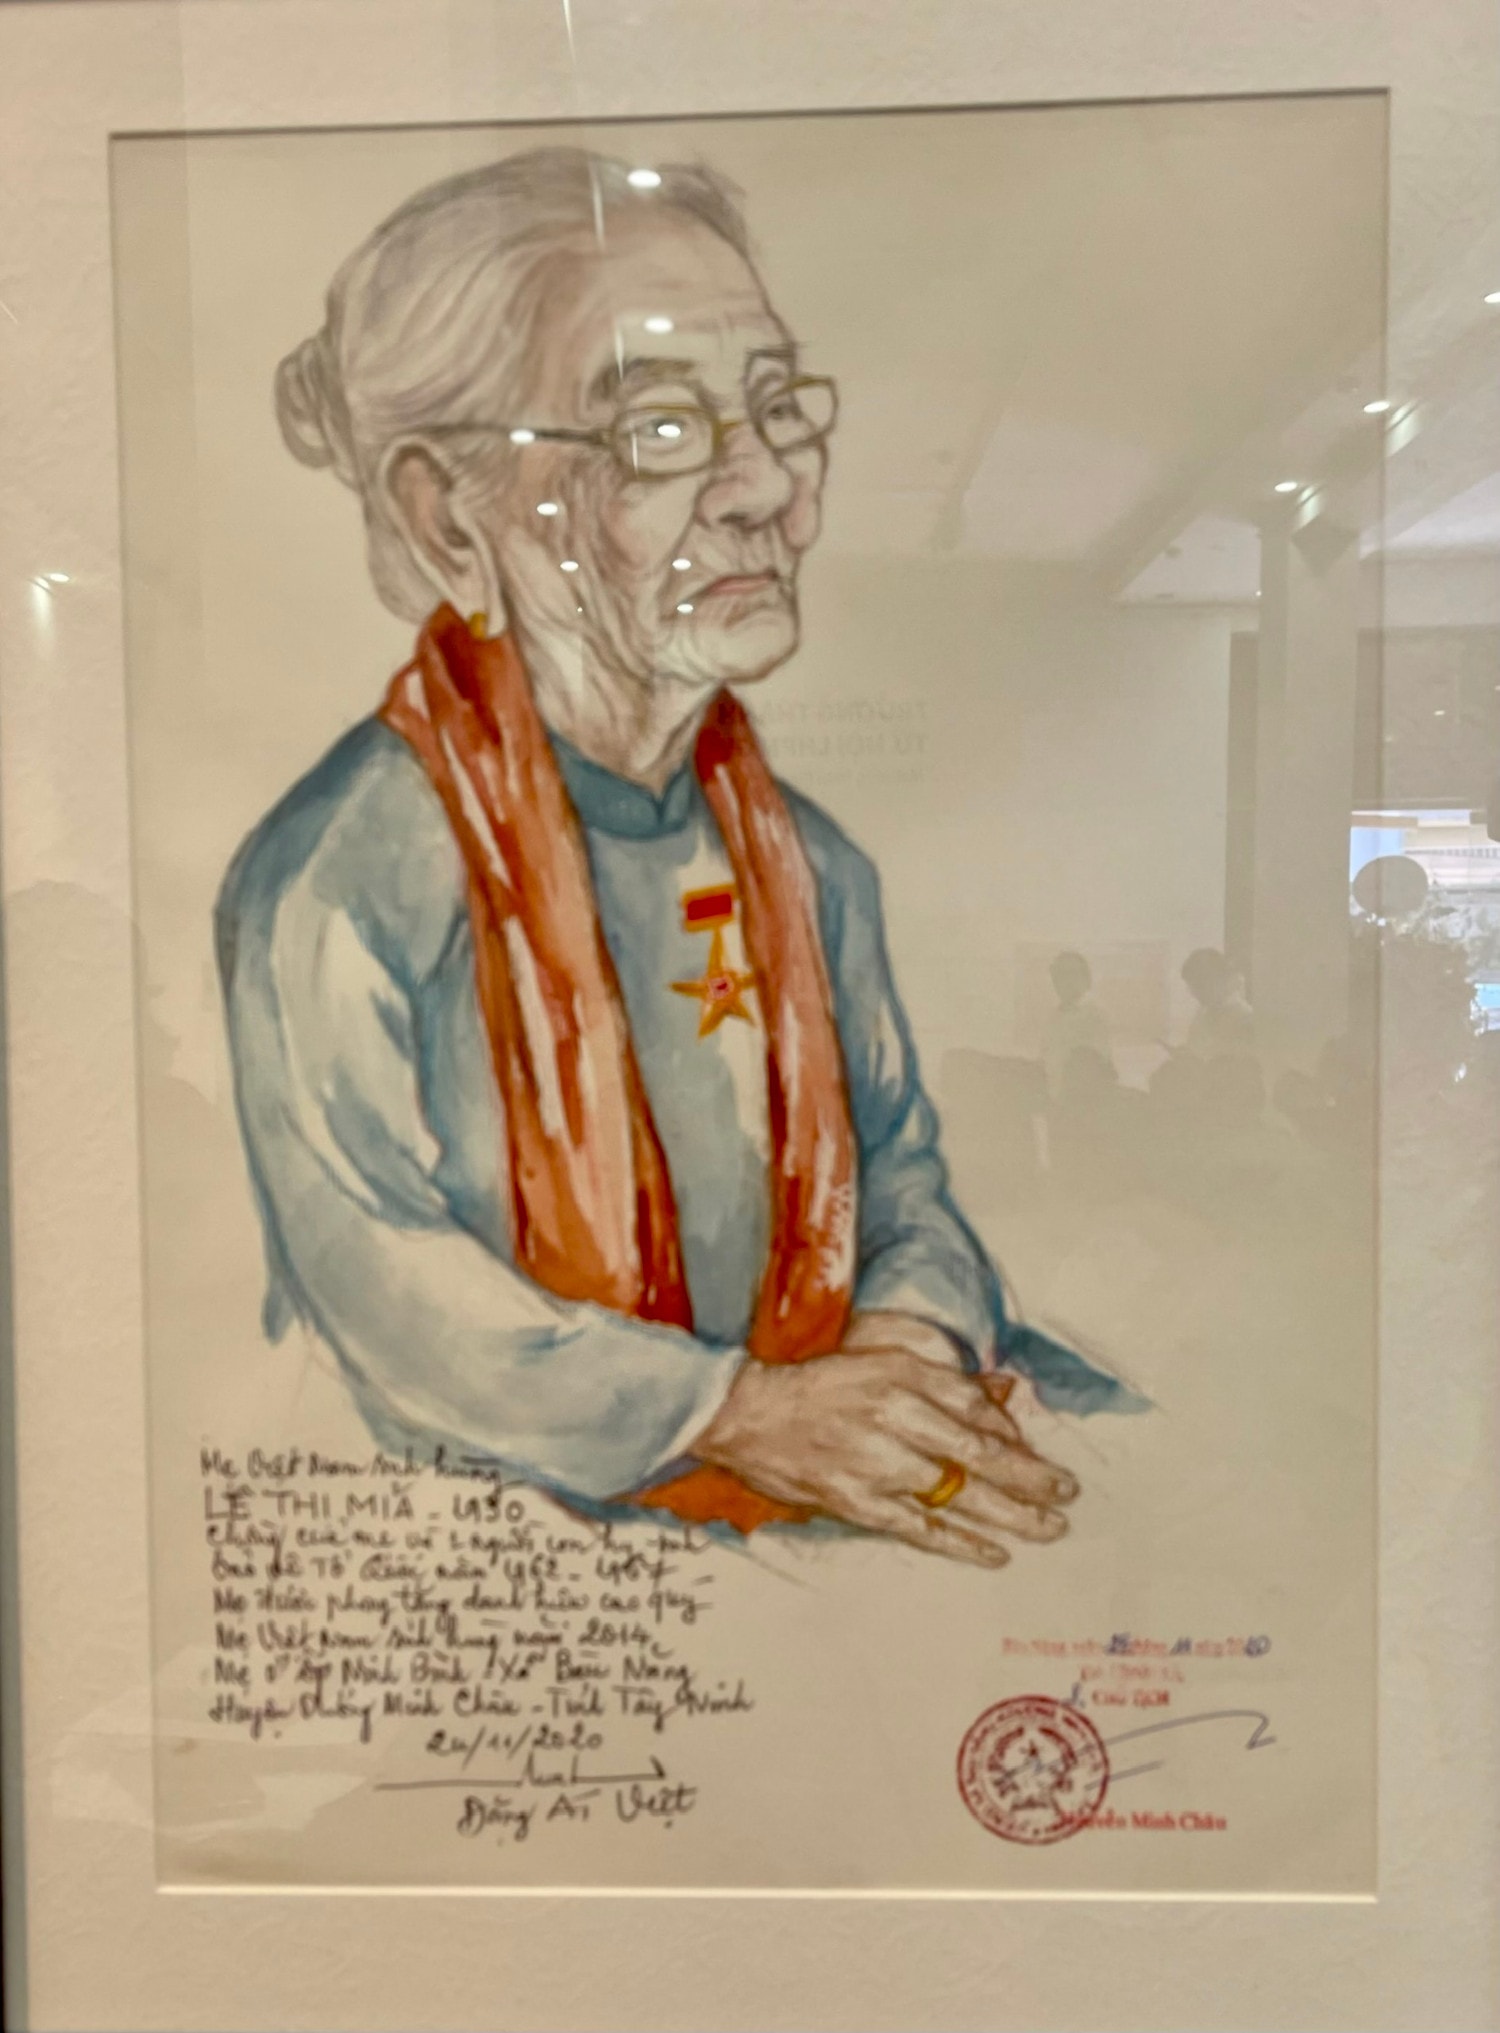 Mẹ Việt Nam anh hùng
LÊ THỊ MIẢ - 1930
Chồng của mẹ và 1 người con hy sinh
bảo vệ Tổ Quốc năm 1962 - 1967
Mẹ được phong tặng danh hiệu cao quý
Mẹ Việt Nam anh hùng năm 2014
Mẹ ở ấp Ninh Bình - Xã Bàu Năng
Huyện Dương Minh Châu - Tỉnh Tây Ninh
24/11/2020
Đặng Ái Việt
CHỦ TỊCH
Minh Châu